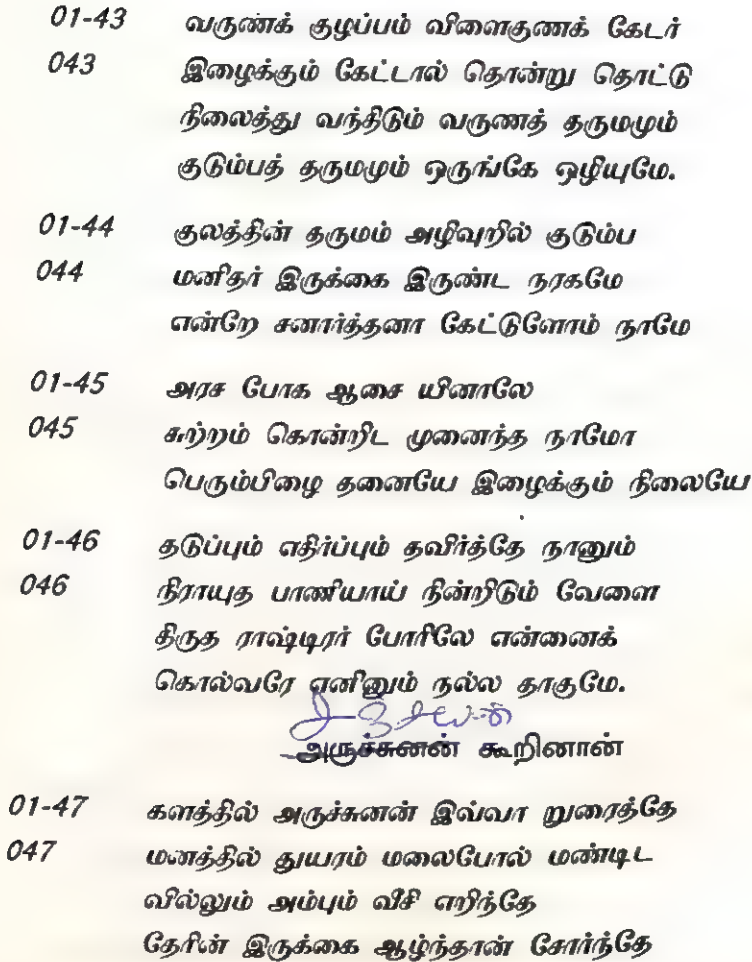 01-43 வருணக் குழப்பம் விளைகுணக் கேடர்
043 இழைக்கும் கேட்டால் தொன்று தொட்டு
நிலைத்து வந்திடும் வருணத் தருமமும்
குடும்பத் தருமமும் ஒருங்கே ஒழியுமே.
01-44 குலத்தின் தருமம் அழிவுறில் குடும்ப
044 மனிதர் இருக்கை இருண்ட நரகமே
என்றே சனார்த்தனா கேட்டுளோம் நாமே
01-45 அரச போக ஆசை யினாலே
045 சுற்றம் கொன்றிட முனைந்த நாமோ
பெரும்பிழை தனையே இழைக்கும் நிலையே
01-46 தடுப்பும் எதிர்ப்பும் தவிர்த்தே நானும்
046 நிராயுத பாணியாய் நின்றிடும் வேளை
திருத ராஷ்டிரர் போரிலே என்னைக்
கொல்வரே எனினும் நல்ல தாகுமே.
சஞ்சயன்
அருச்சுனன் கூறினான்
01-47 களத்தில் அருச்சுனன் இவ்வா றுரைத்தே
047 மனத்தில் துயரம் மலைபோல் மண்டிட
வில்லும் அம்பும் வீசி எறிந்தே
தேரின் இருக்கை ஆழ்ந்தான் சோர்ந்தே